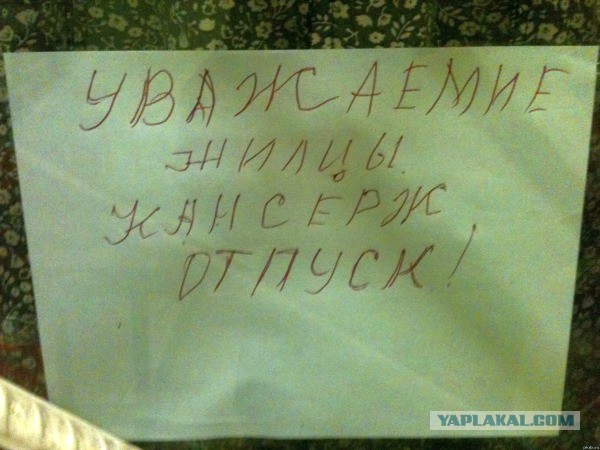 УВАЖАЕМИЕ
ЖИЛЦЫ
КАНСЕРЖ
ОТПУСК!
YAPLAKAL.COM